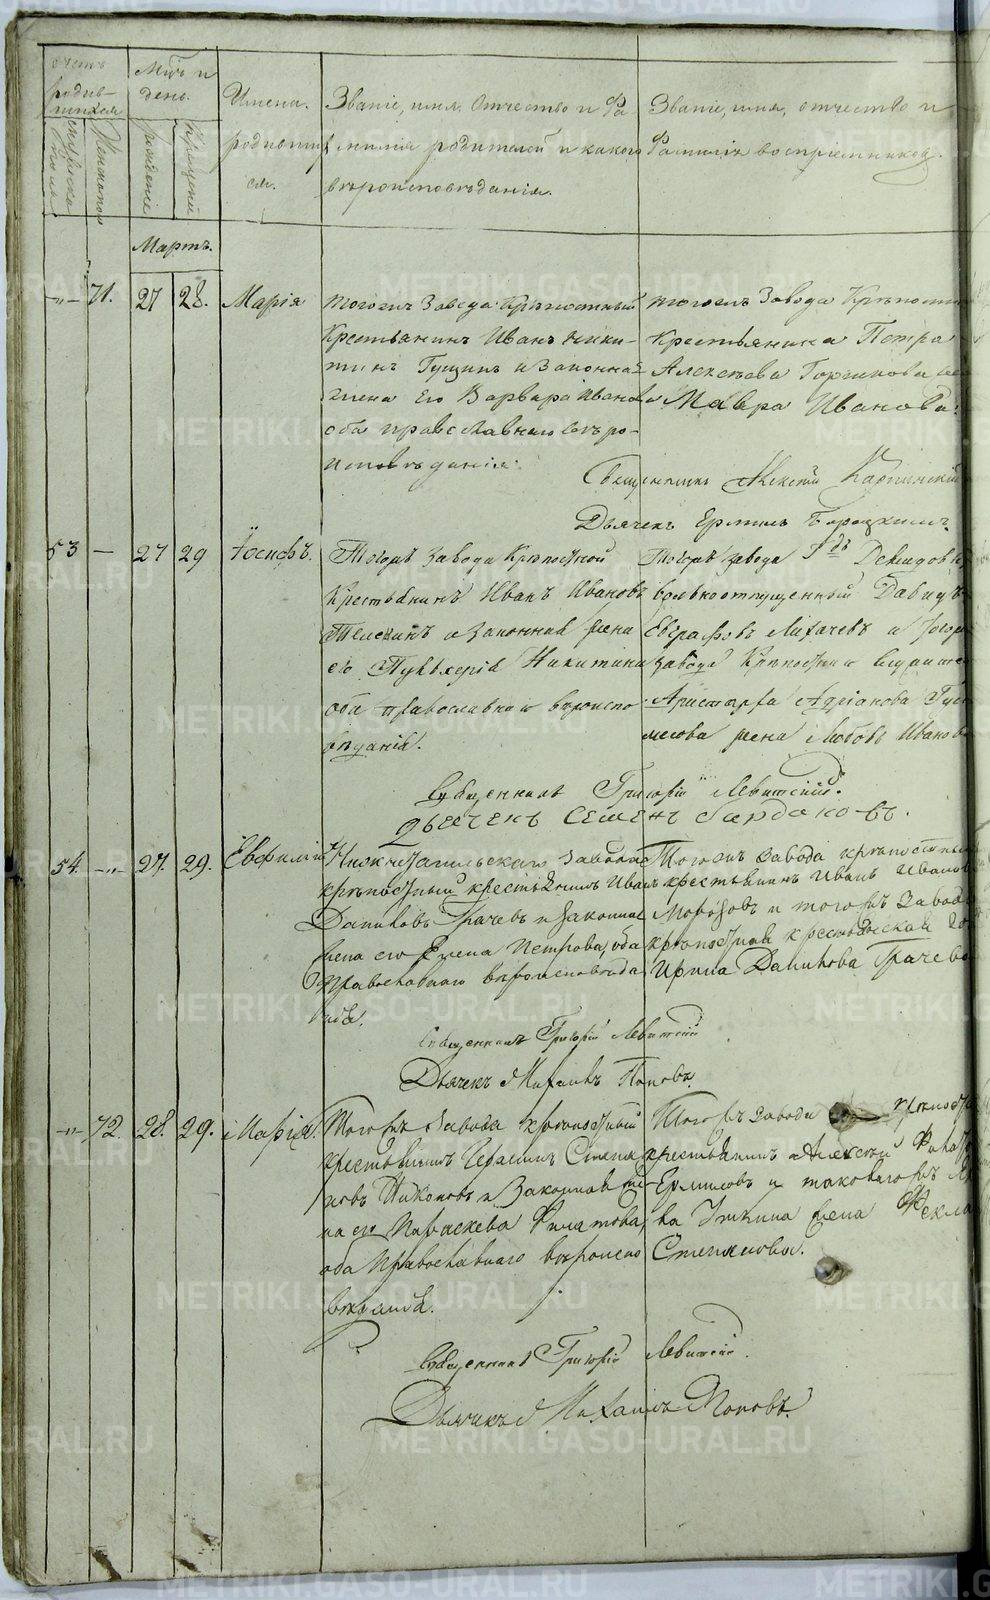 Счетъ родив-
шихся
Мѣс. и
день.
Имена.
родивших
ся.
Званіе, имя, Отчество и Фа
милія родителей и какого
вѣроисповѣданія.
Званіе, имя, отчество и
Фамилія воспріемниковъ.
Мартъ.
71. 27 28. Марія
тогожъ Завода Крѣпостный
Крестьянинъ Иванъ Ники-
тинъ Гущинъ и Законная
жена Его Варвара Иванова
оба православнаго вѣро-
исповѣданія.
тогожъ Завода Крѣпостн
Крестьянина Петра
Алексѣева Горшкова
Мавра Иванова.
Священникъ Алексій Карпинскій
Дьячекъ Ермилъ
53 — 27 29 Іосифъ.
Тогожъ завода Крѣпостной
Крестьянинъ Иванъ Ивановъ
и Законная жена
его Пульхерія Никитина
оба православнаго вѣроиспо
вѣданія.
Тогожъ завода Демидов
вольноотпущенный Давидъ
Евграфовъ Лихачевъ и тогож
завода Крѣпостнаго
Аристарха Адріанова
жена Любовь Иванов
Священникъ Григорій Левитскій.
Дьячекъ Семенъ
54. 27. 29. Евфимія
Нижнетагильскаго завода
крѣпостный крестьянинъ Иванъ
Даниловъ Грачевъ и законная
жена его Елена Петрова, оба
Православнаго вѣроисповѣда
нія.
Тогожъ завода крѣпостный
крестьянинъ Иванъ Иванов
Морозовъ и тогожъ завода
крѣпостная крестьянская
Ирина Данилова Грачева
Священникъ Григорій Левитскій
Дьячекъ Михаилъ Поповъ.
72. 28. 29. Марія.
Тогожъ завода крѣпостный
крестьянинъ Герасимъ Степа
новъ Никоновъ и Законная же-
на его Параскева Филатова,
оба Православнаго вѣроиспо
вѣданія.
Тогожъ завода крѣпостн
крестьянинъ Алексѣй
Ермиловъ и таковагожъ
ва Уткина жена Фекла
Степанова.
Священникъ Григорій Левитскій.
Дьячекъ Михаилъ Поповъ.
METRIKI.GASO-URAL.RU